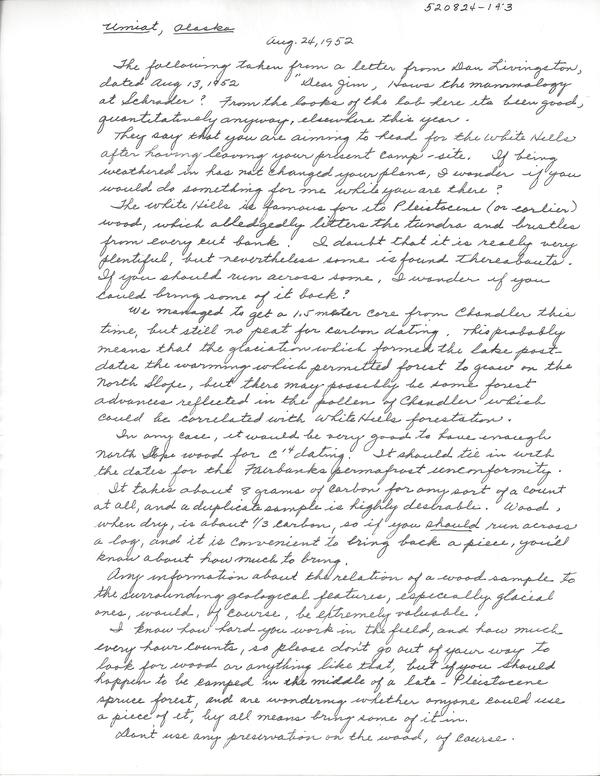 520824-143
Umiat, Alaska
Aug. 24, 1952
The following taken from a letter from Dan Livingston,
dated Aug 13, 1952 "Dear Jim, Hows the mammology
at Schrader? From the looks of the lab here its been good,
quantitatively anyway, elsewhere this year.
They say that you are aiming to head for the White Hills
after having leaving your present camp-site. If being
weathered in has not changed your plans, I wonder if you
would do something for me while you are there?
The White Hills is famous for its Pleistocene (or earlier)
wood, which alledgedly litters the tundra and bristles
from every cut bank. I doubt that it is really very
plentiful, but nevertheless some is found thereabouts.
If you should run across some, I wonder if you
could bring some of it back?
We managed to get a 1.5 meter core from Chandler this
time, but still no peat for carbon dating. This probably
means that the glaciation which formed the lake post-
dates the warming which permitted forest to grow on the
North Slope, but there may possibly be some forest
advances reflected in the pollen of Chandler which
could be correlated with White Hills forestation.
In any case, it would be very good to have enough
North Slope wood for C14 dating. It should tie in with
the dates for the Fairbanks permafrost unconformity.
It takes about 8 grams of carbon for any sort of a count
at all, and a duplicate sample is highly desirable. Wood,
when dry, is about 1/3 carbon, so if you should run across
a log, and it is convenient to bring back a piece, you'll
know about how much to bring.
Any information about the relation of a wood sample to
the surrounding geological features, especially glacial
ones, would, of course, be extremely valuable.
I know how hard you work in the field, and how much
every hour counts, so please don't go out of your way to
look for wood or anything like that, but if you should
happen to be camped in the middle of a late-Pleistocene
spruce forest, and are wondering whether anyone could use
a piece of it, by all means bring some of it in.
Dont use any preservation on the wood, of course.